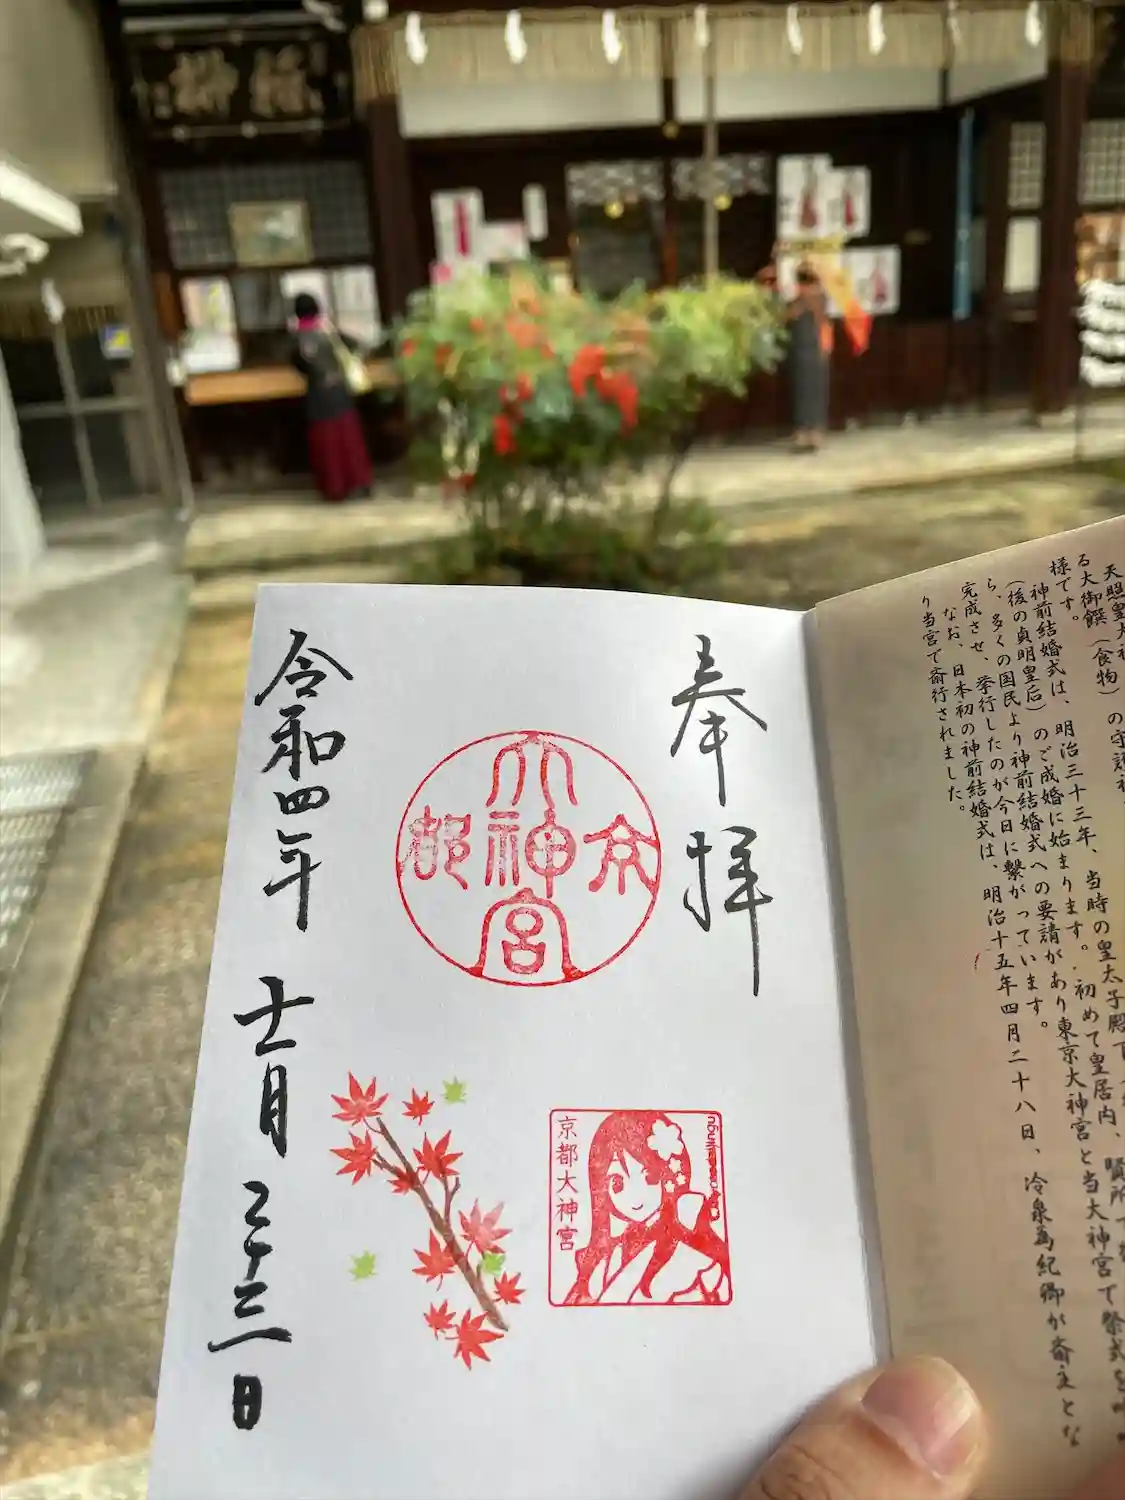 様です。
神前結婚式は、明治三十三年、当時の皇太子殿下
(後の貞明皇后)のご成婚に始まります。初めて皇居内、賢所で
ら、多くの国民より神前結婚式への要請があり東京大神宮と当大神宮で祭式を
完成させ、挙行したのが今日に繋がっています。
なお、日本初の神前結婚式は、明治十五年四月二十八日、冷泉為紀卿が斎主とな
り当宮で斎行されました。
奉拝
京都
大神宮
京都大神宮
令和四年 十一月 二十三日